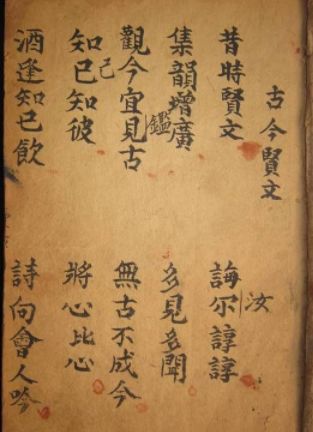 古今賢文
昔時賢文 誨尔諄諄
汝
集韻增廣 多見多聞
觀今宜見古 無古不成今
鑑
知己知彼 將心比心
己
酒逢知已飲 詩向會人吟